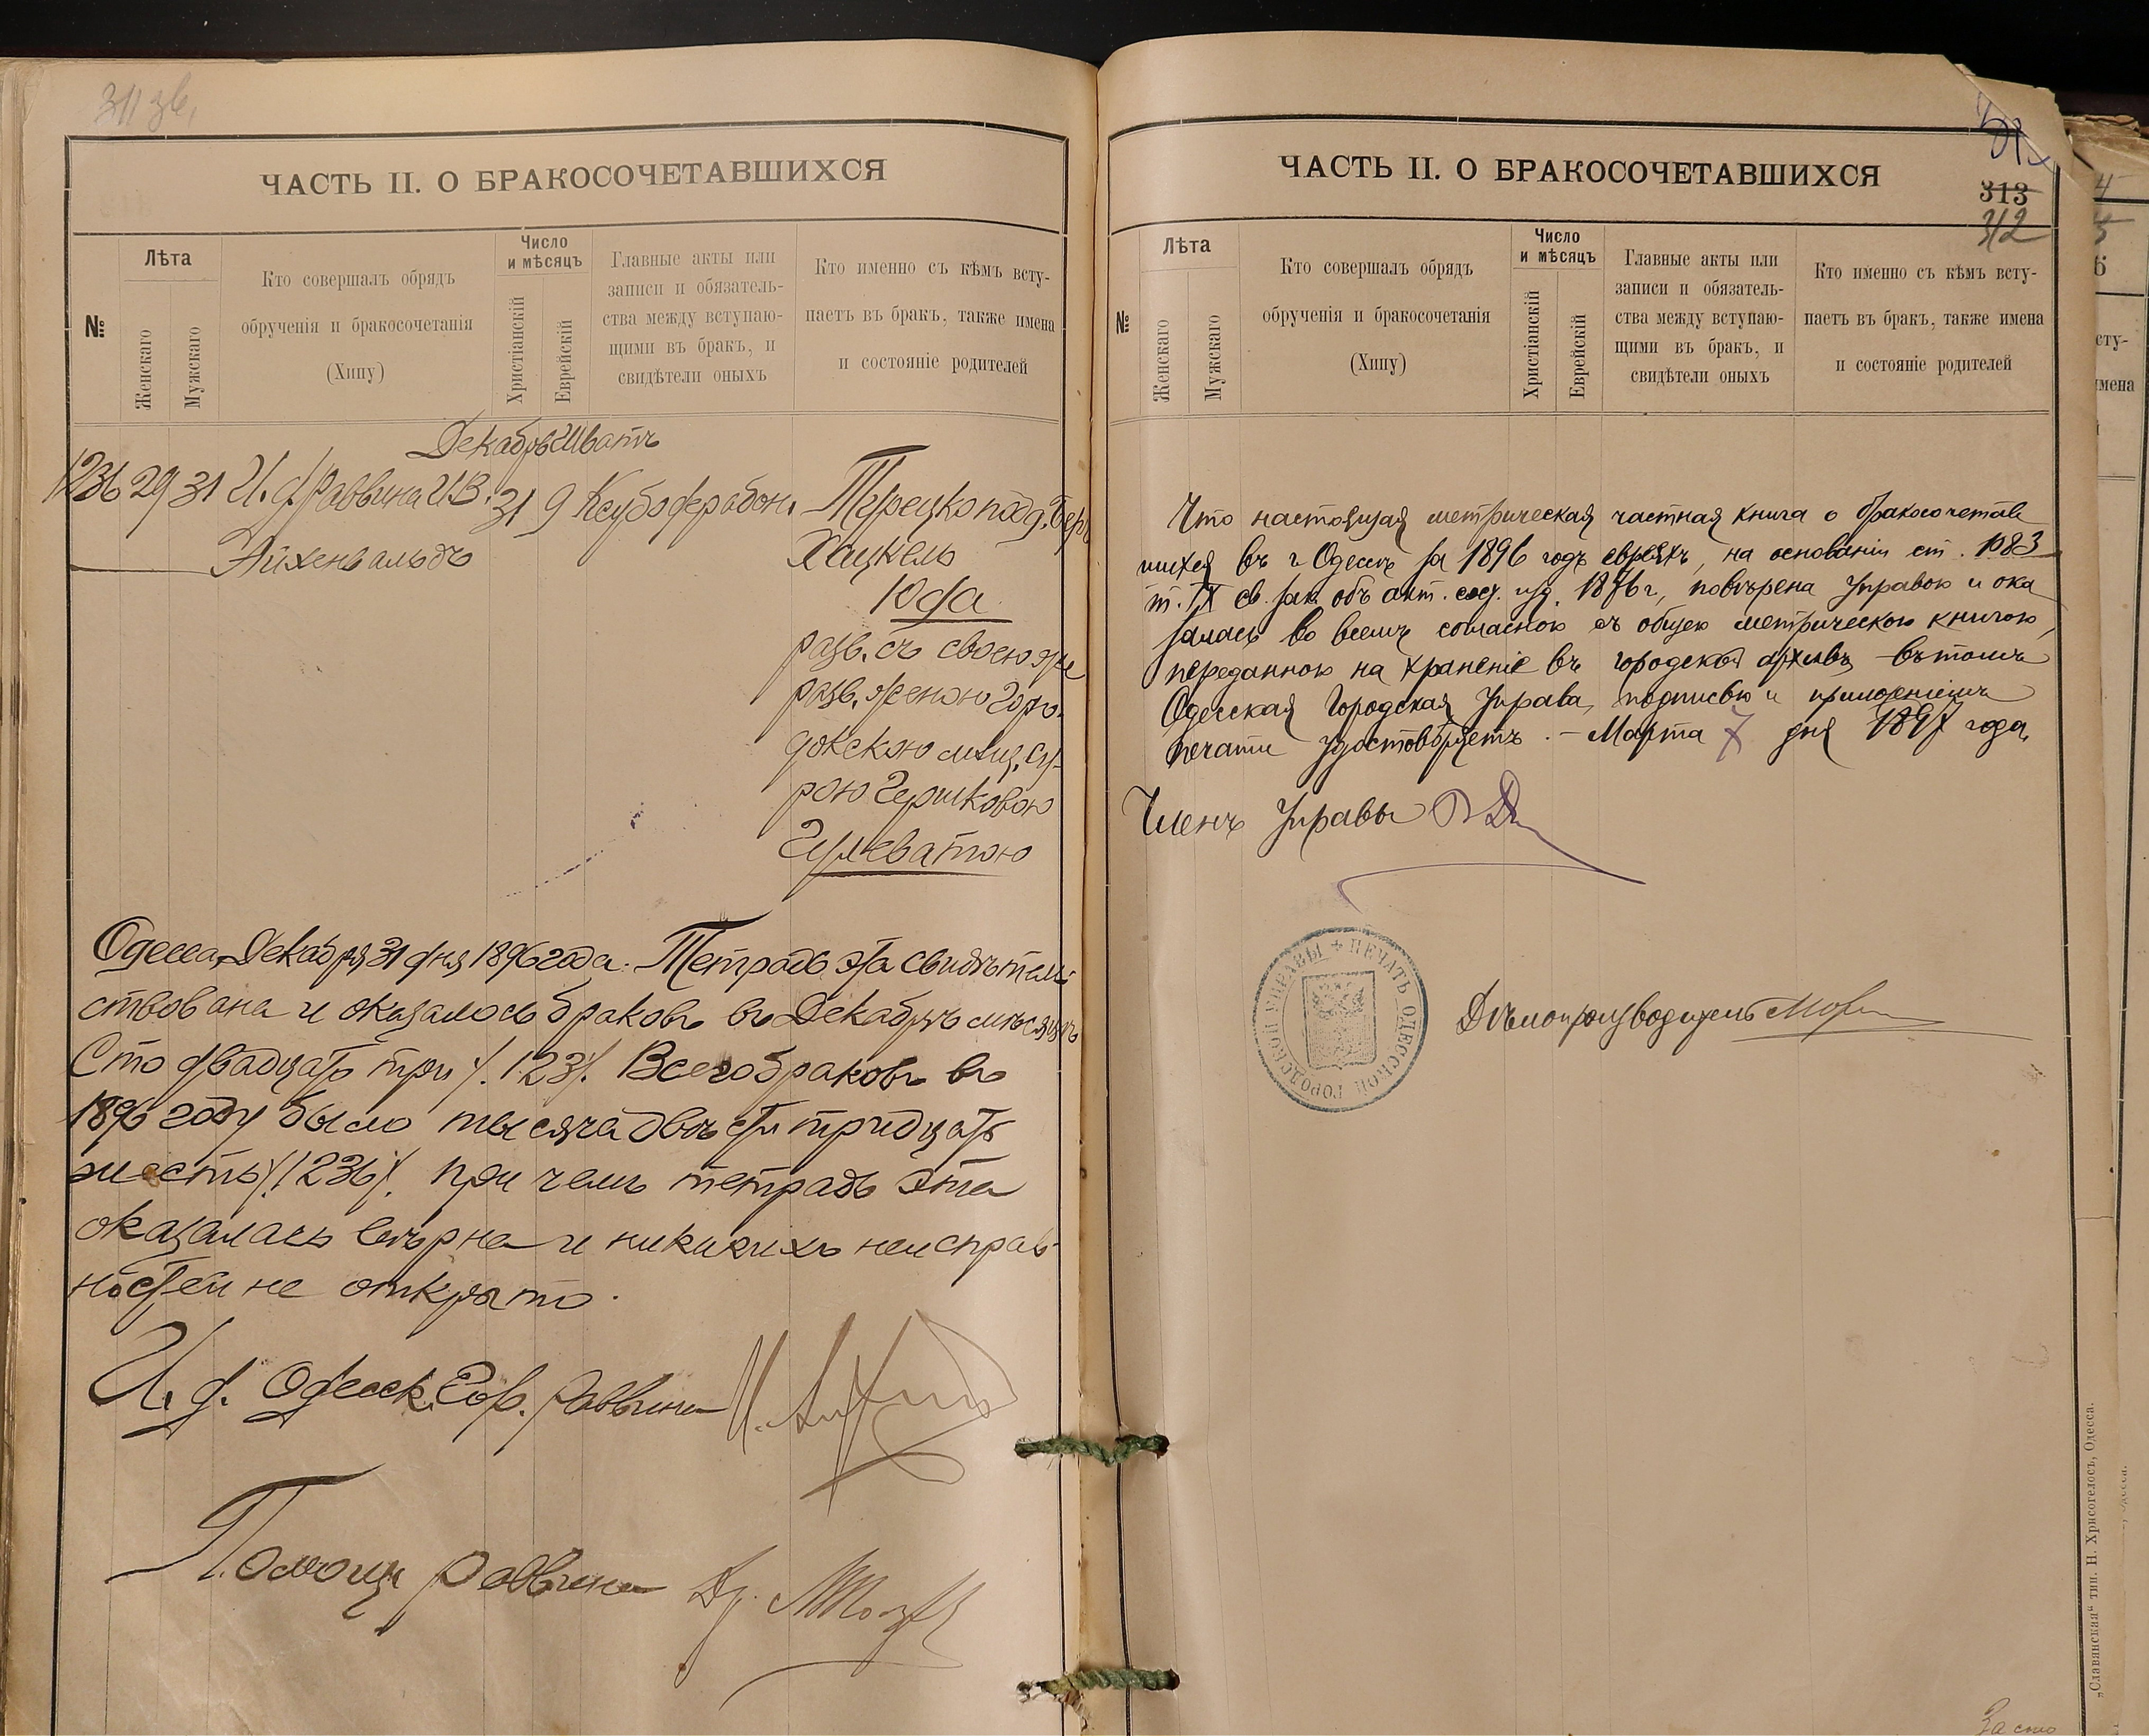 311 зв.
ЧАСТЬ II. О БРАКОСОЧЕТАВШИХСЯ
№
Лѣта
Женскаго
Мужскаго
Кто совершалъ обрядъ
обрученія и бракосочетанія
(Хипу)
Число
и мѣсяцъ
Христіанскій
Еврейскій
Главные акты или
записи и обязатель-
ства между вступаю-
щими въ бракъ, и
свидѣтели оныхъ
Кто именно съ кѣмъ всту-
паетъ въ бракъ, также имена
и состояніе родителей
Декабрь Шватъ
1236 29 31 И. д. Раввина И.В. 31 9 Ксубо дерабон. Турецко подд. Беръ
Эйхенвальдъ Хацкель
Юда
разв. съ своею
разв. женою Горо-
докскою мѣщ. Су-
рою Гершковою
Гулеватою
Одесса, Декабря 31 дня 1896 года. Тетрадь эта свидѣтель-
ствована и оказалось браковъ въ Декабрѣ мѣсяцѣ
Сто двадцать три ./.123./. Всего браковъ въ
1896 году было тысяча двѣсти тридцать
шесть ./.1236./. при чемъ тетрадь эта
оказалась вѣрна и никакихъ неисправ-
ностей не открыто.
И. д. Одесск. Гор. Раввина
Помощн раввина Др.
ЧАСТЬ II. О БРАКОСОЧЕТАВШИХСЯ
313
312
№
Лѣта
Женскаго
Мужскаго
Кто совершалъ обрядъ
обрученія и бракосочетанія
(Хипу)
Число
и мѣсяцъ
Христіанскій
Еврейскій
Главные акты или
записи и обязатель-
ства между вступаю-
щими въ бракъ, и
свидѣтели оныхъ
Кто именно съ кѣмъ всту-
паетъ въ бракъ, также имена
и состояніе родителей
Что настоящая метрическая частная книга о бракосочетав
шихся въ г. Одессѣ за 1896 годъ евреяхъ, на основаніи ст. 1083
т. IX св. зак. объ акт. сост. изд. 1876 г., повѣрена Управою и ока
залась во всемъ согласною съ общею метрическою книгою,
переданною на храненіе въ городской архивъ, въ томъ
Одесская Городская Управа, подписью и приложеніемъ
печати удостовѣряетъ. – Марта 7 дня 1897 года.
Членъ Управы
ПЕЧАТЬ ОДЕССКОЙ ГОРОДСКОЙ УПРАВЫ
Дѣлопроизводитель
„Славянская“ тип. Н. Хрисогелосъ, Одесса.
За сто